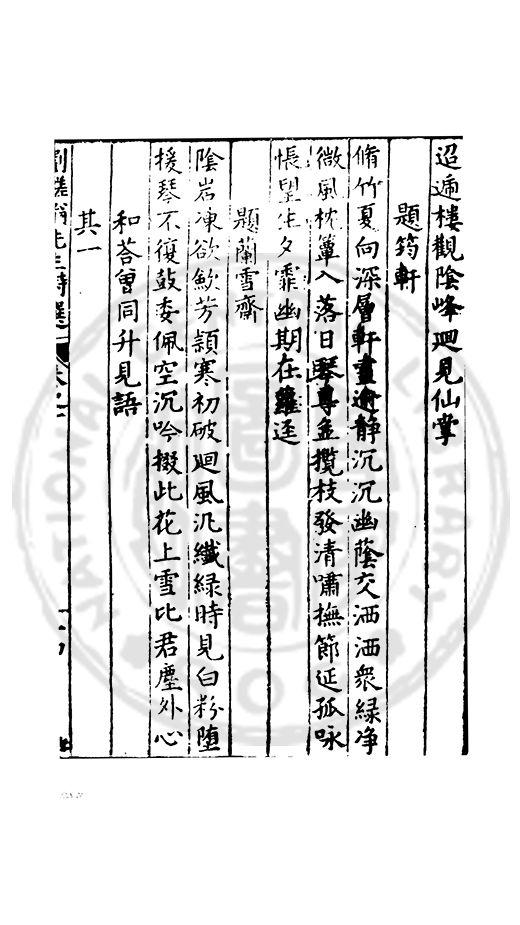 迢遞樓觀陰峰迴見仙掌
題筠軒
脩竹夏向深層軒晝逾靜沉沉幽蔭交洒洒衆緑净
微風枕簟入落日琴尊並攬枝發清嘯撫節延孤咏
悵望生夕霏幽期在蘿逕
題蘭雪齋
陰岩凍欲歇芳頴寒初破廻風汎纖緑時見白粉堕
援琴不復鼓委佩空沉吟掇此花上雪比君塵外心
和荅曾同升見語
其一
先生詩選